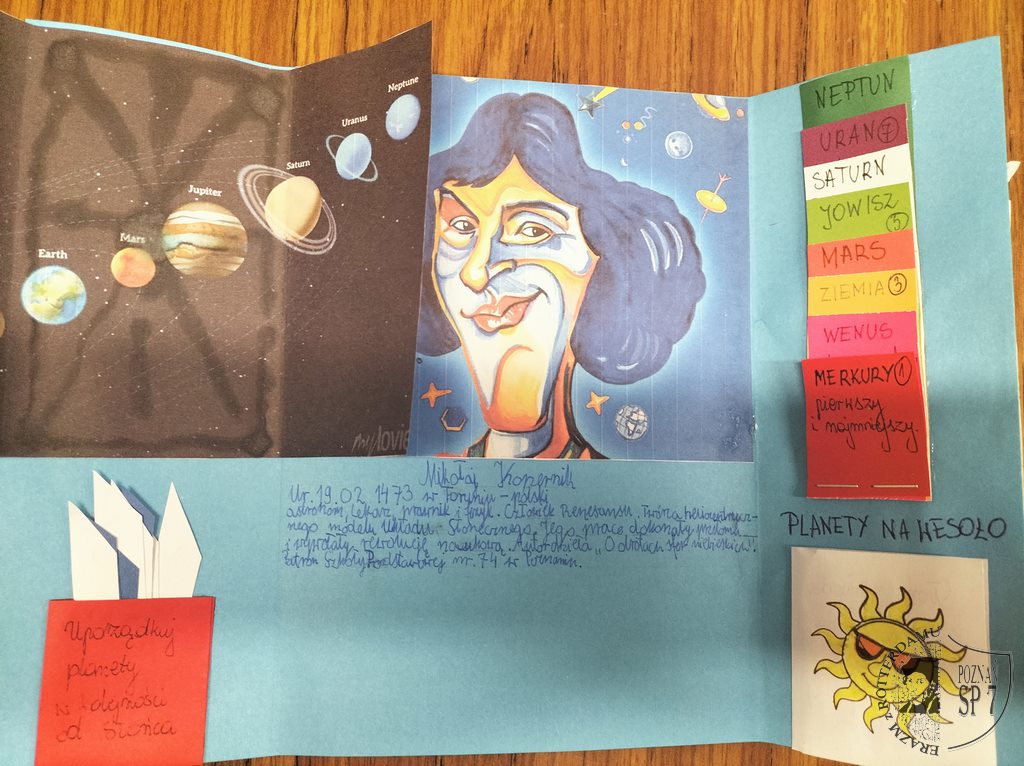 Neptune
Uranus
Saturn
Jupiter
Mars
Earth
NEPTUN
URAN 7
SATURN
JOWISZ
5
MARS
ZIEMIA 3
WENUS
MERKURY 1
pierwszy
i najmniejszy.
Mikołaj Kopernik
Ur. 19.02 1473 w Toruniu - polski
astronom, lekarz, prawnik i
Człowiek Renesansu. Twórca heliocentrycz-
nego modelu Układu Słonecznego. Jego prace dokonały przełomu
i wywołały rewolucję naukową. Autor dzieła "O obrotach sfer niebieskich".
Patron Szkoły Podstawowej nr. 74 w Poznaniu.
PLANETY NA WESOŁO
Uporządkuj
planety
w kolejności
od słońca
ERAZM z ROTTERDAMU
POZNAŃ
SP 7